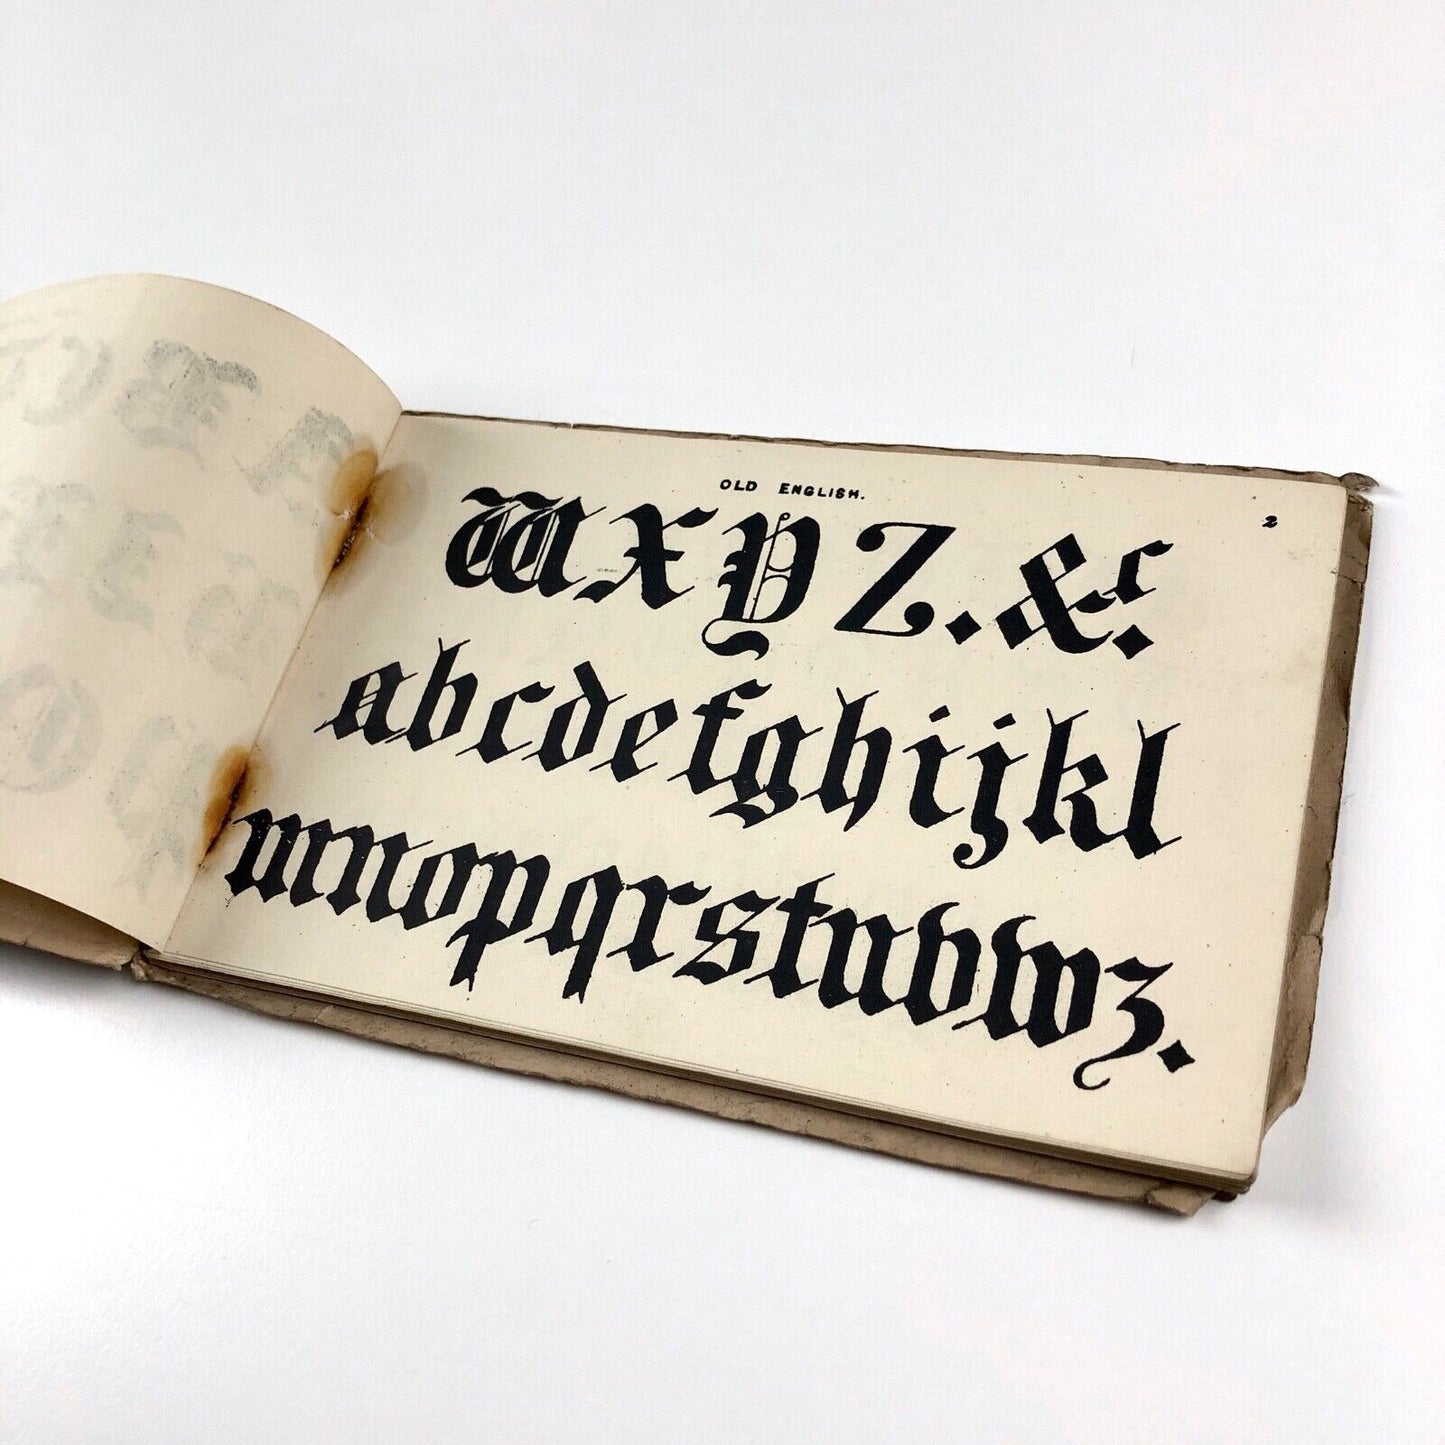 OLD ENGLISH.
2
W X Y Z. &c.
abcdefghijkl
mnopqrstuvwz.